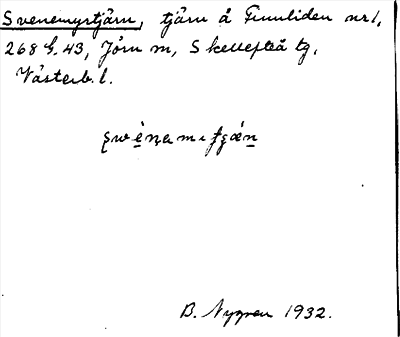 Svenemyrtjärn, tjärn å Finnliden nr 1,
268 G. 43, Jörn sn, Skellefteå tg,
Västerb. l.
B. Nygren 1932.